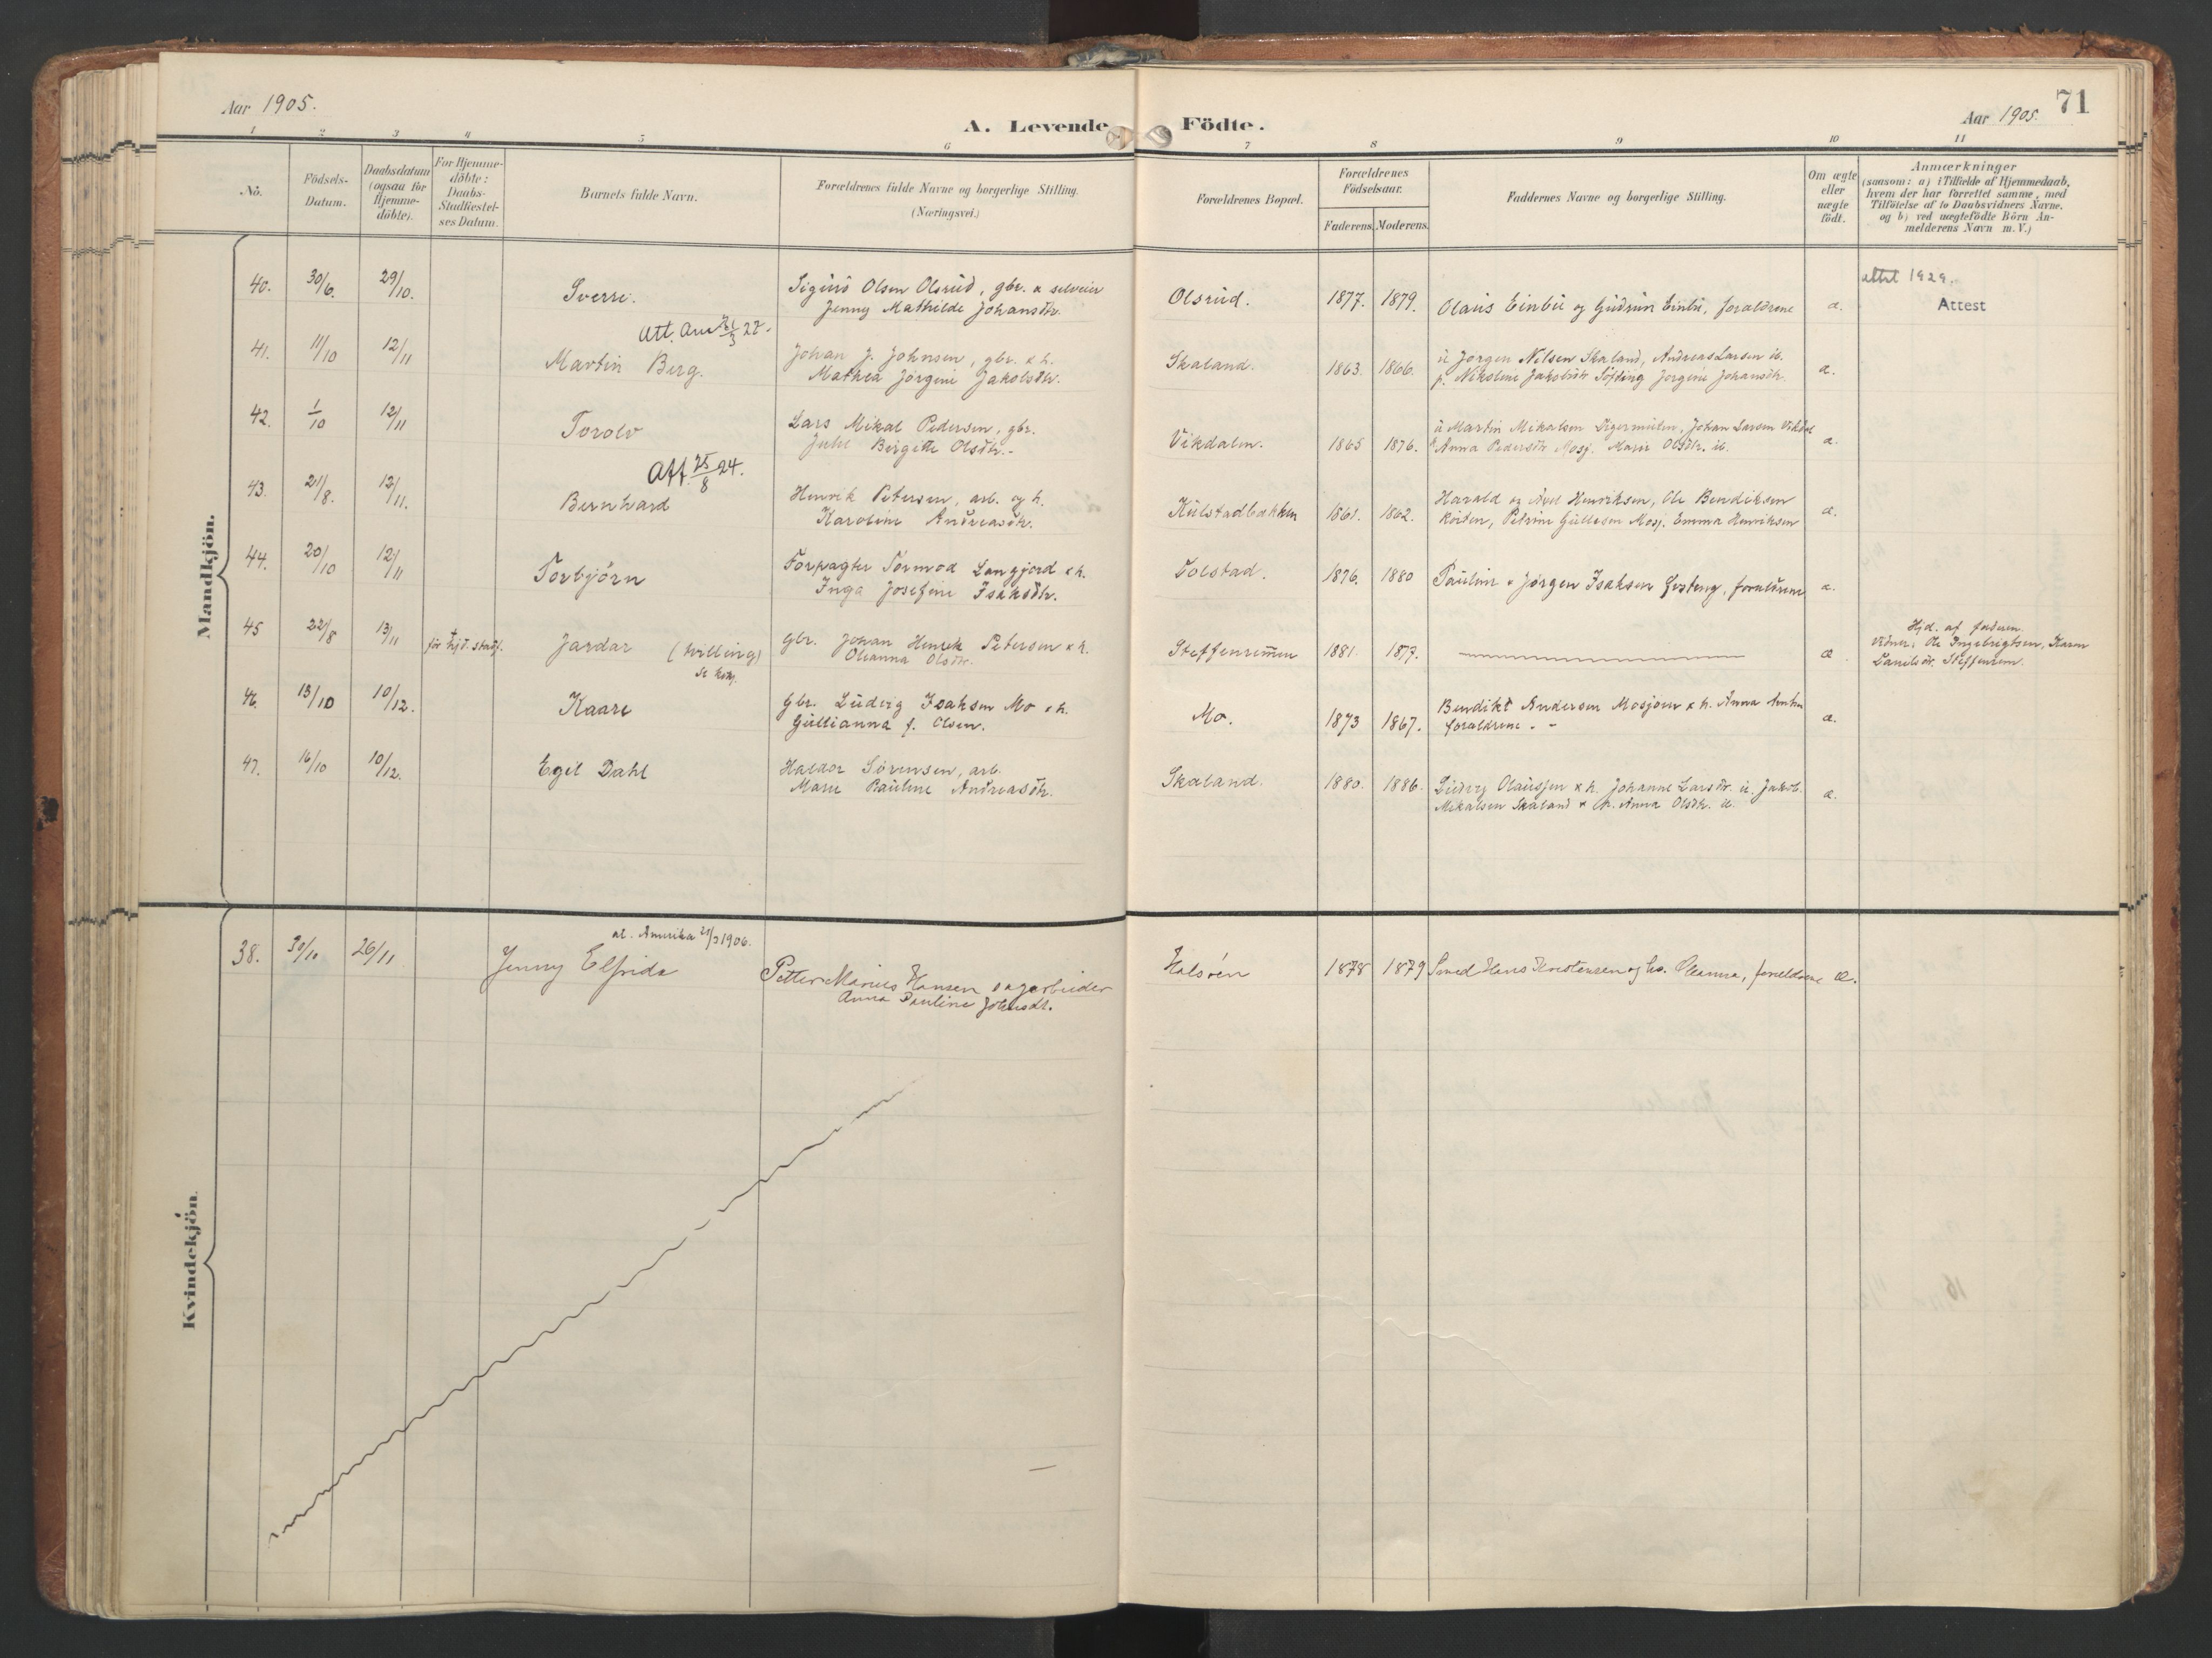 Aar 1905.
A. Levende Födte.
Aar 1905. 71
1 2 3 4 5 6 7 8 9 10 11
No.
Födsels-
Datum.
Daabsdatum
(ogsaa for
Hjemme-
döbte).
For Hjemme-
döbte:
Daabs-
Stadfæstel-
ses Datum.
Barnets fulde Navn.
Forældrenes fulde Navne og borgerlige Stilling.
(Næringsvei.)
Forældrenes Bopæl.
Forældrenes
Födselsaar.
Faderens. Moderens.
Faddernes Navne og borgerlige Stilling.
Om ægte
eller
uægte
födt.
Anmærkninger
(saasom: a) i Tilfælde af Hjemmedaab,
hvem der har forrettet samme, med
Tilföielse af to Daabsvidners Navne,
og b) ved uægtefödte Börn An-
melderens Navn m. V.)
Mandkjön.
40. 30/6. 29/10. Sverre. Sigurd Olsen Olsrud, gbr. & selveier
Jenny Mathilde Johansdtr. Olsrud. 1877. 1879. Olaus Einbu og Gudrun Einbu, forældrene æ. attst 1929.
Attest
Att. 3 22.
41. 11/10 12/11 Martin Berg. Johan J. Johnsen, gbr. & h.
Mathea Jörgine Jakobsdtr. Skaland. 1863. 1866. u. Jörgen Nilsen Skaland, Andreas Larsen ib.
p. Nikoline Jakobsdtr Jörgine Johansdtr. æ.
42. 1/10 12/11 Torolv Lars Mikal Pedersen, gbr.
Birgitte Olsdtr. Vikdalen. 1865 1876. u. Martin Mikalsen Johan Larsen
Anna Pedersdtr Mosj. Marie Olsdtr. ib. æ.
Att. 25/8 24.
43. 21/8. 12/11. Bernhard Henrik Petersen, arb. og h.
Karoline Andreasdtr. Kulstadbakken 1861. 1862. Harald og Henriksen, Ole Bendiksen
Petrine Mosj. Emma Henriksen æ.
44. 20/10 12/11 Torbjörn Forpagter Tormod Langjord & h.
Inga Josefine Isaksdtr. Dolstad. 1876. 1880 Pauline & Jörgen Isaksen forældrene æ.
45 22/8 13/11 for hjd. stadf. Jardar (tvilling) gbr. Johan Henrik Petersen & h.
Oleanna Olsdtr. Steffenremmen 1881. 1877. æ. Hjd. af faderen.
Vidner: Ole Ingebrigtsen, Karen
Danielsdtr. Steffenrem.
46. 13/10 10/12. Kaare Gbr. Ludvig Isaksen Mo & h.
Gullianna f. Olsen. Mo. 1873 1867. Bendikt Andersen Mosjöen & h. Anna
forældrene. æ.
47. 16/10 10/12. Egil Dahl Haldor Sörensen, arb.
Marie Pauline Andreasdtr. Skaland. 1880. 1886. Ludvig Olaussen & h. Johanne Larsdtr. u. Jakob
Mikalsen Skaland & h. Anna Olsdtr. ib. æ.
Kvindekjön.
ul. Amerika 21/3 1906.
38. 30/10 26/11 Jenny Elfrida Petter Marius Hansen sagarbeider
Anna Pauline Johansdt. Halsöen 1878 1879 Smed Hans Kristensen og hs. Oleanna, forældrene æ.